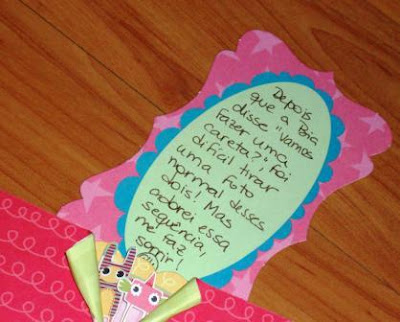 Depois
que a Bia
disse "vamos
fazer uma
careta?", foi
dificil tirar
uma foto
normal desses
dois! Mas
adorei essa
sequência,
me faz
sorrir!